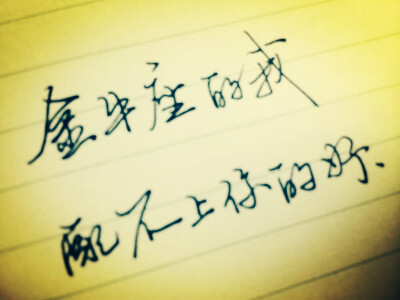 金牛座的我
配不上你的好、